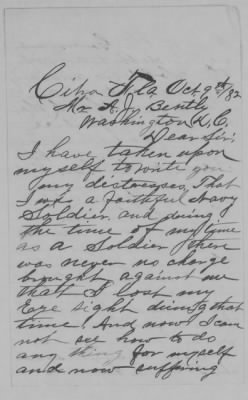 Ciba Fla Oct 9th /82
Mr A. J. Bently
Washington D. C.
Dear Sir.
I have taken upon
myself to write you
my distresses, That
I was a faithful Navy
Soldier and during
the time of my time
as a Soldier there
was never no charge
brought against me
that I lost my
Eye sight during that
time. And now I can
not see how to do
any thing for myself
and now suffering